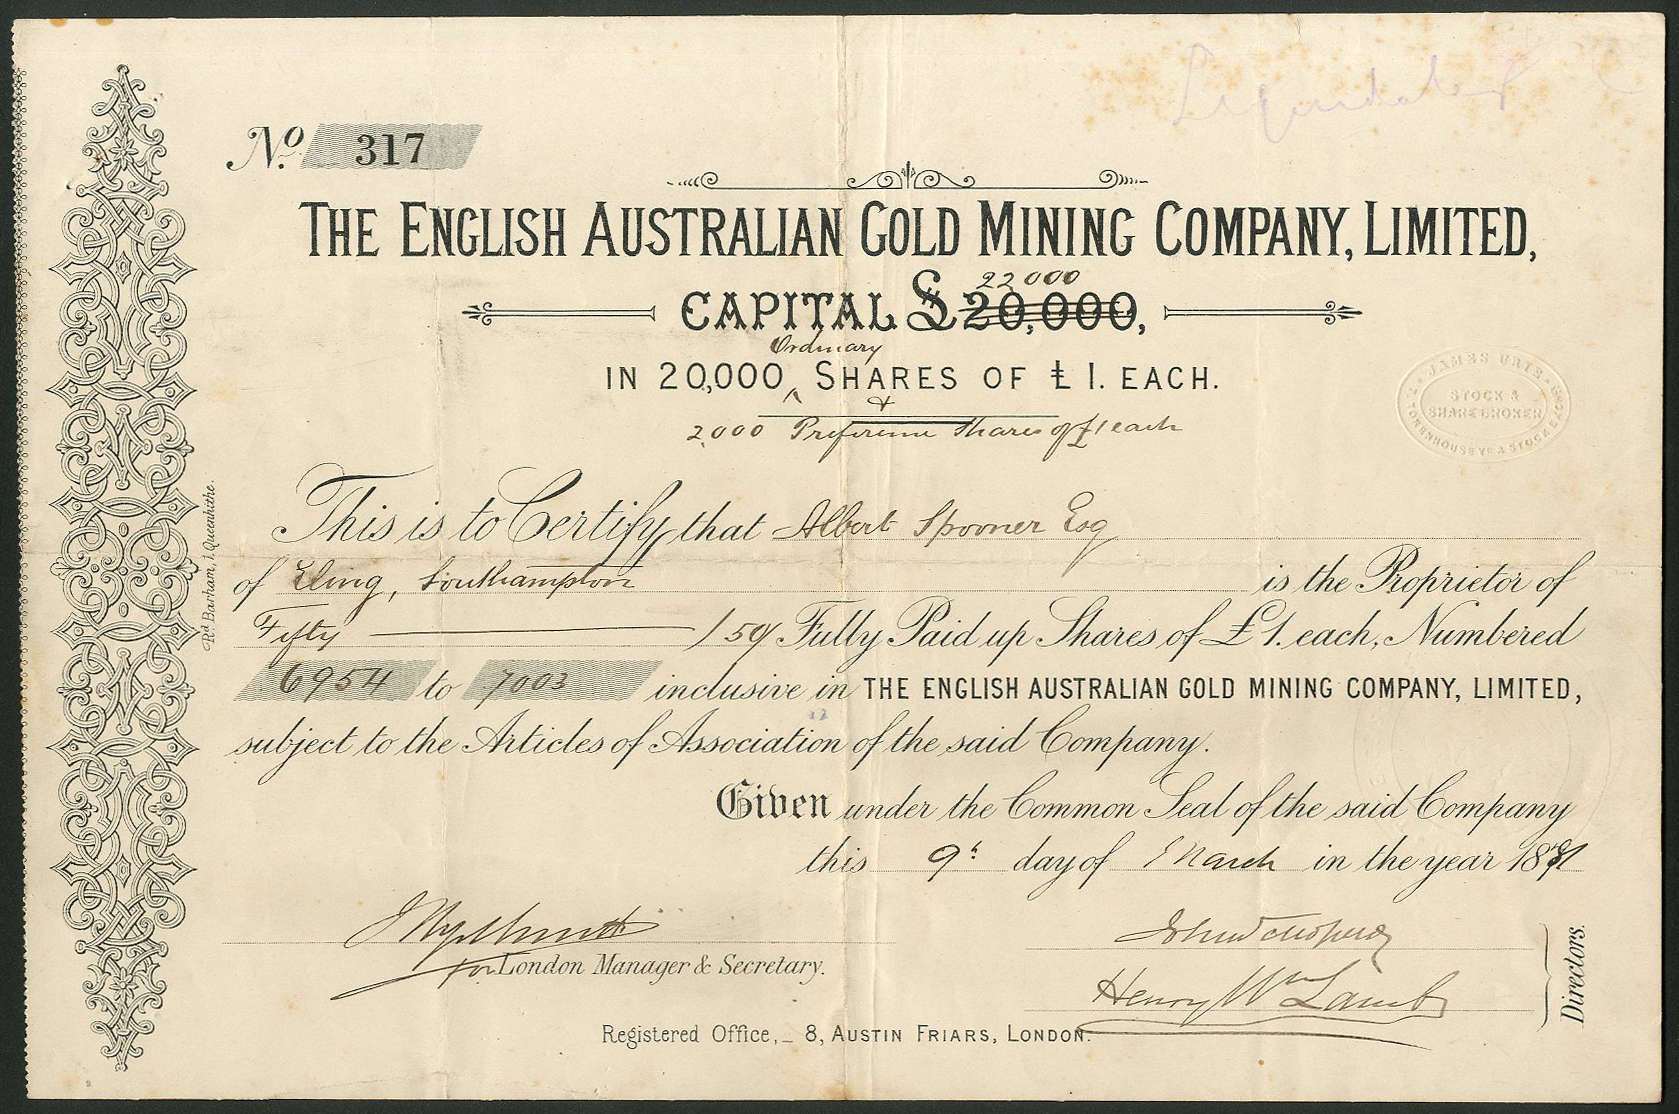 Liquidated
No. 317
THE ENGLISH AUSTRALIAN GOLD MINING COMPANY, LIMITED,
22000
CAPITAL £20,000,
Ordinary
IN 20,000 SHARES OF £1. EACH.
&
2,000 Preference Shares of £1 each
JAMES URIE
STOCK &
SHAREBROKER
TOKENHOUSE Yd & STOCK EXCH
This is to Certify that Albert Spooner Esq
of Eling, Southampton is the Proprietor of
Fifty / 50 / Fully Paid up Shares of £1. each, Numbered
6954 to 7003 inclusive in THE ENGLISH AUSTRALIAN GOLD MINING COMPANY, LIMITED,
subject to the Articles of Association of the said Company.
Given under the Common Seal of the said Company
this 9th day of March in the year 1881
for London Manager & Secretary.
Henry Wm Lamb
Directors.
Registered Office, _ 8, AUSTIN FRIARS, LONDON.
Rd. Barham, 1, Queenhithe.